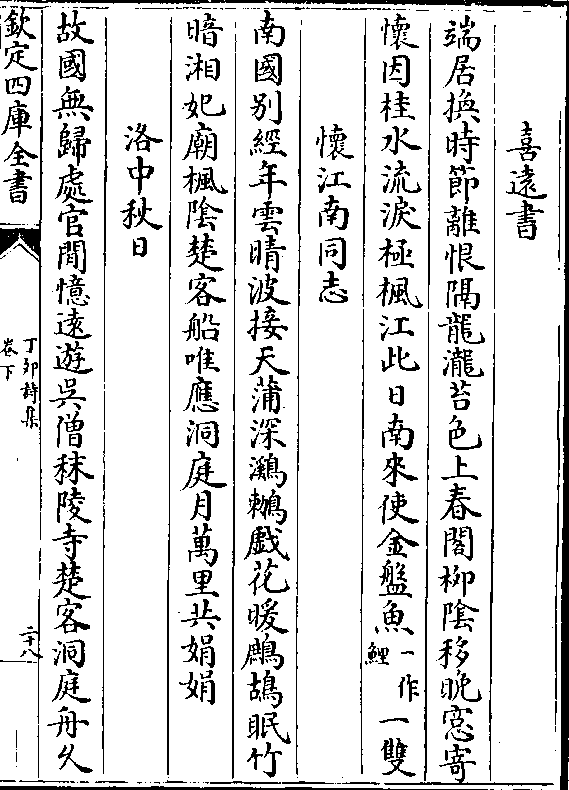 喜遠書
端居換時節離恨隔龍瀧苔色上春閣栁陰移晚窓寄
懷因桂水流淚極楓江此日南來使金盤魚一作鯉一雙
懷江南同志
南國别經年雲晴波接天蒲深鸂鶒戯花暖鷓鴣眠竹
暗湘妃廟楓陰楚客船唯應洞庭月萬里共娟娟
洛中秋日
故國無歸處官閒憶遠遊吳僧秣陵寺楚客洞庭舟久
欽定四庫全書
丁卯詩集
卷下
二十八